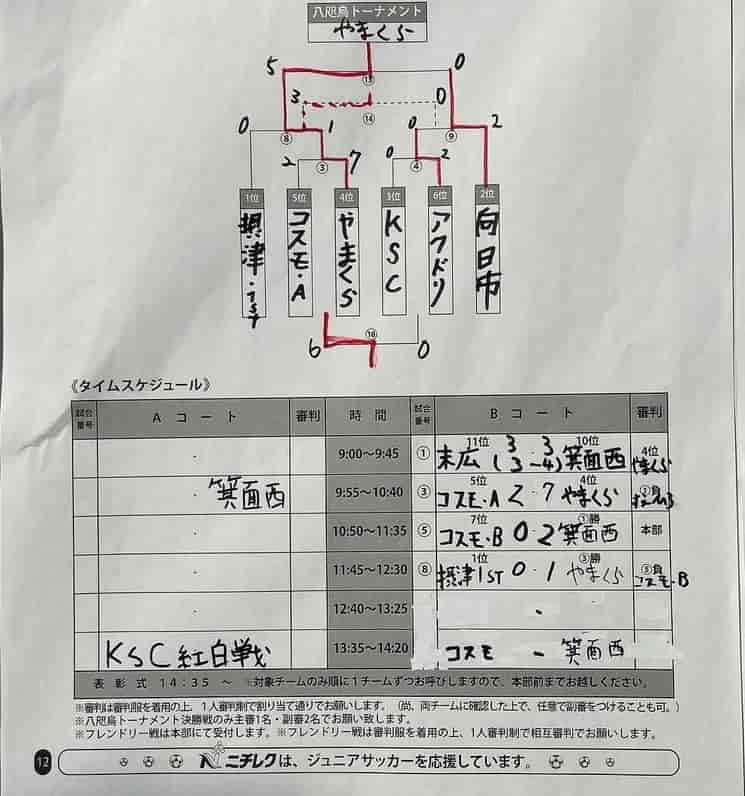 八咫烏トーナメント
やまくら
5 ⑮ 0
3 ⑭ 0
0 ⑧ 1 0 ⑨ 2
2 ③ 7 0 ④ 2
1位 5位 4位 3位 6位 2位
摂津・1ST コスモ・A やまくら KSC アフドリ 向日市
6 ⑯ 0
《タイムスケジュール》
試合番号 Aコート 審判 時間 試合番号 Bコート 審判
11位 10位
- 9:00〜9:45 ① 末広 3 3 (3-4) 箕面西 4位 やまくら
5位 4位
- 箕面西 9:55〜10:40 ③ コスモ・A 2-7 やまくら ①負
7位 ①勝
- 10:50〜11:35 ⑤ コスモ・B 0-2 箕面西 本部
1位 ③勝
- 11:45〜12:30 ⑧ 摂津1ST 0-1 やまくら ⑤負 コスモ・B
- 12:40〜13:25 -
KSC紅白戦 13:35〜14:20 コスモ - 箕面西
表彰式 14:35 〜 ※対象チームのみ順に1チームずつお呼びしますので、本部前までお越しください。
※審判は審判服を着用の上、1人審判制で割り当て通りでお願いします。(尚、両チームに確認した上で、任意で副審をつけることも可。)
※八咫烏トーナメント決勝戦のみ主審1名・副審2名でお願い致します。
※フレンドリー戦は本部にて受付します。※フレンドリー戦は審判服を着用の上、1人審判制で相互審判でお願いします。
12 ニチレクは、ジュニアサッカーを応援しています。